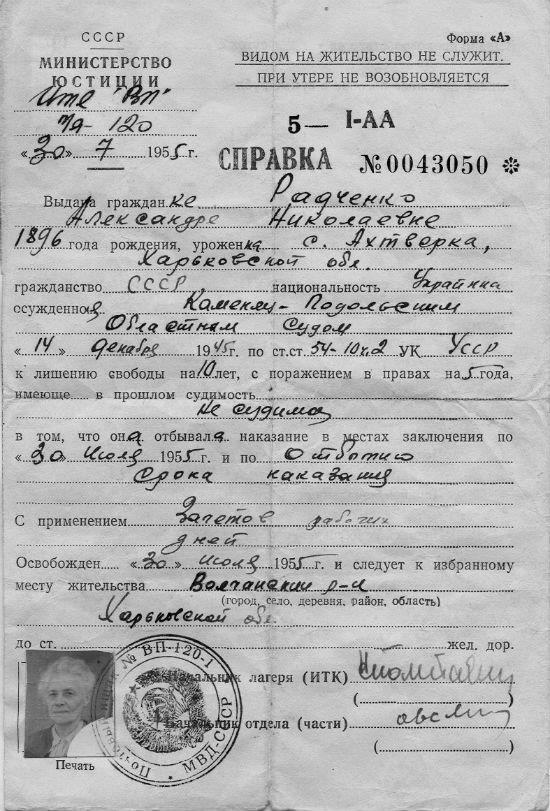 СССР
МИНИСТЕРСТВО
ЮСТИЦИИ
"ВП"
п/я-120
«30» 7 1955г.
Форма «А»
ВИДОМ НА ЖИТЕЛЬСТВО НЕ СЛУЖИТ.
ПРИ УТЕРЕ НЕ ВОЗОБНОВЛЯЕТСЯ
5— I-АА
СПРАВКА №0043050 *
Выдана гражданке Радченко
Александре Николаевне
1896 года рождения, уроженка с. Ахтверка,
Харьковской обл.
гражданство СССР, национальность Украинка
осужденная Каменец-Подольским
Областным Судом
«14» декабря 1945г. по ст.ст. 54-10 ч.2 УК УССР
к лишению свободы на 10 лет, с поражением в правах на 5 года,
имеющe в прошлом судимость
Не судима
в том, что она отбывала наказание в местах заключения по
«30» Июля 1955г. и по Отбытию
срока наказания
С применением Зачетов рабочих
дней
Освобожден «30» июля 1955г. и следует к избранному
месту жительства Волчанский р-н
(город, село, деревня, район, область)
Харьковской обл.
до ст. жел. дор.
Начальник лагеря (ИТК)
( )
Начальник отдела (части)
( )
Почтовый ящик № ВП-120-1 * МВД-СССР *
Печать